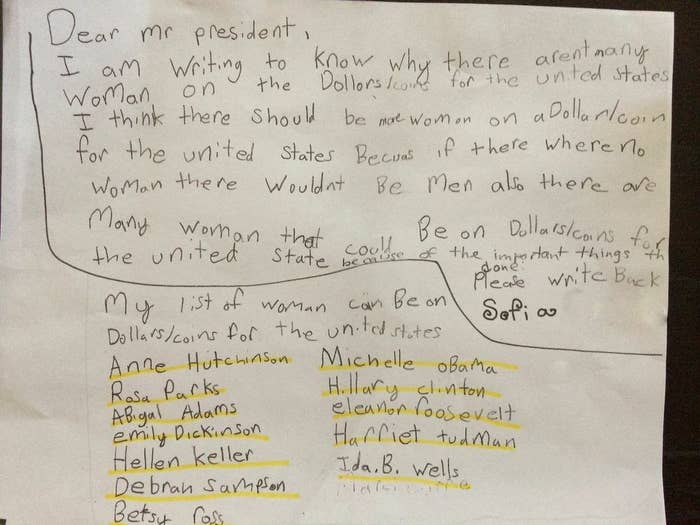 Dear mr president,
I am writing to know why there arent many
woman on the Dollors/coins for the united states
I think there should be more women on a Dollar/coin
for the united states Becuas if there where no
woman there wouldnt Be men also there are
Many woman that could Be on Dollars/coins for
the united state because of the important things th
done.
Please write Back
Sofia
My list of woman can Be on
Dollars/coins for the united states
Anne Hutchinson
Rosa Parks
ABigal Adams
emily Dickinson
Hellen keller
Debrah Sampson
Betsy Ross
Michelle oBama
Hillary clinton
eleanor roosevelt
Harriet tudman
Ida.B. wells